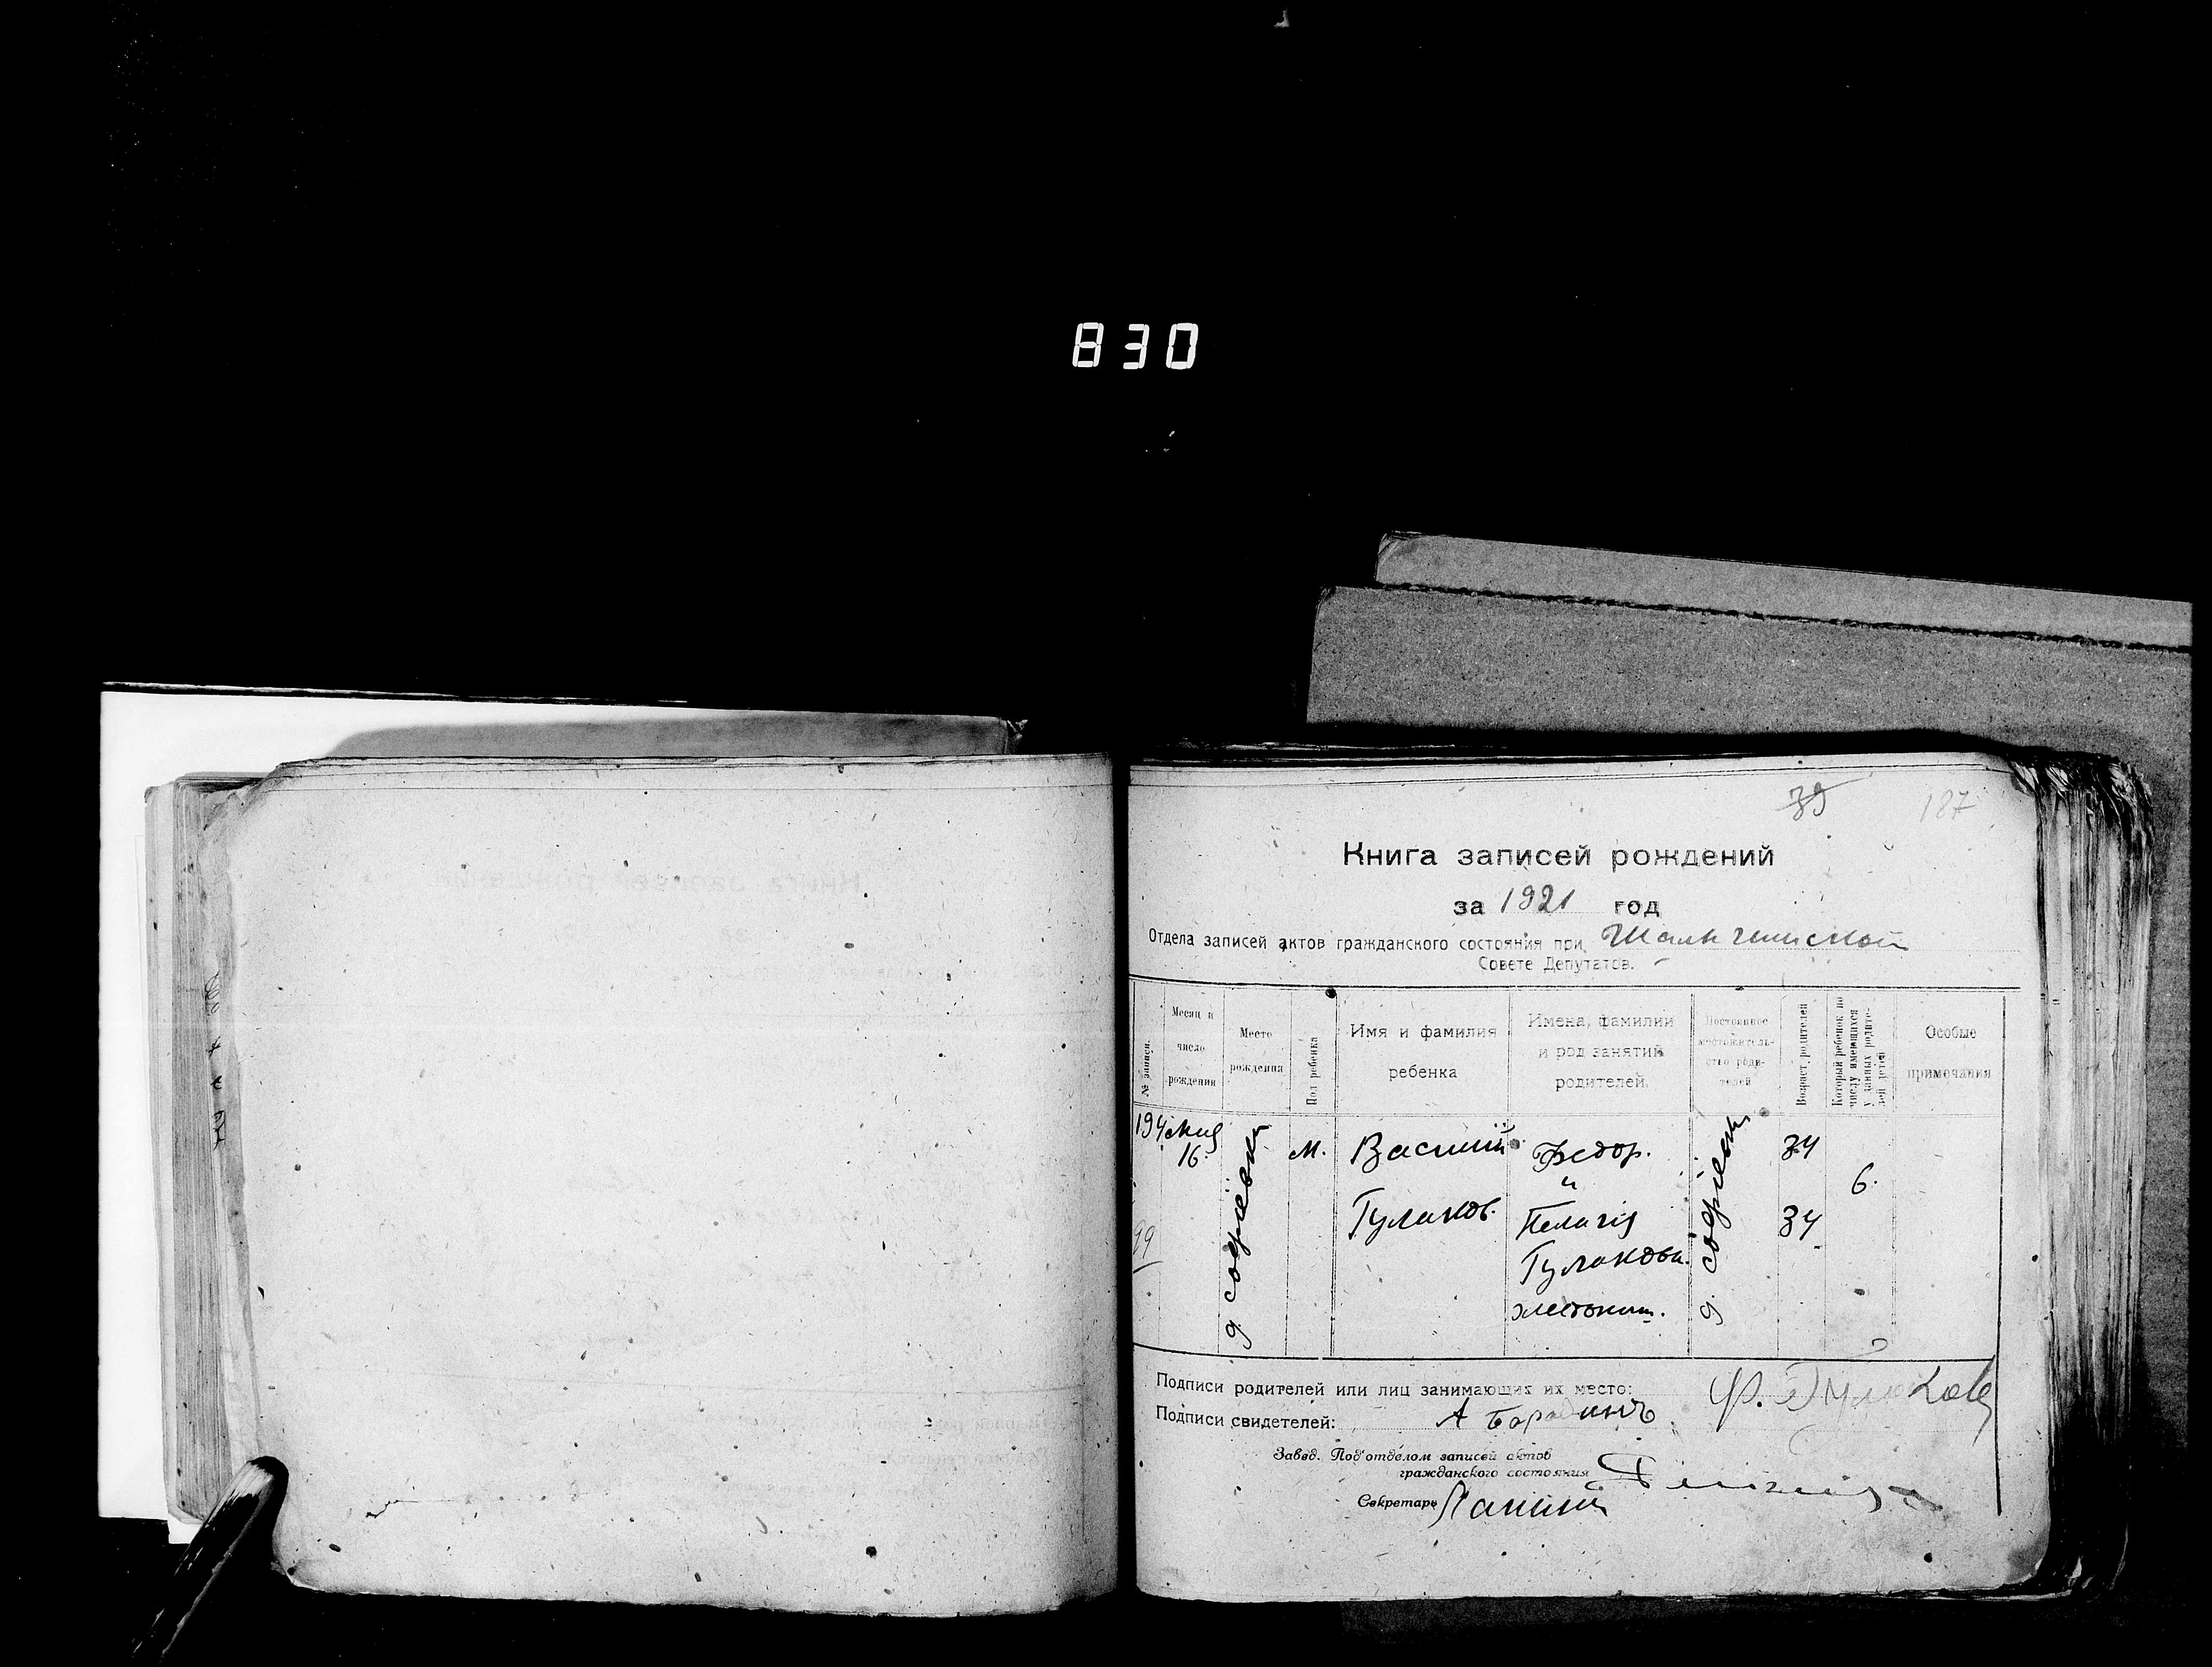 830
39 187
Книга записей рождений
за 1921 год
Отдела записей актов гражданского состояния при
Совете Депутатов.
№ записи.
Месяц и число рождения
Место рождения
Пол ребенка
Имя и фамилия ребенка
Имена, фамилии и род занятий родителей.
Постоянное местожительство родителей
Возраст родителей
Который ребенок по числу имеющихся у данных родителей детей
Особые примечания
194 Мая 16.
м.
Василий
Гулаков.
Федор.
и
Пелагия
Гулаковы.
34
34
6.
99
Подписи родителей или лиц занимающих их место: Ф. Гулаков
Подписи свидетелей: А Бородинъ
Завед. Под'отделом записей актов
гражданского состояния
Секретарь